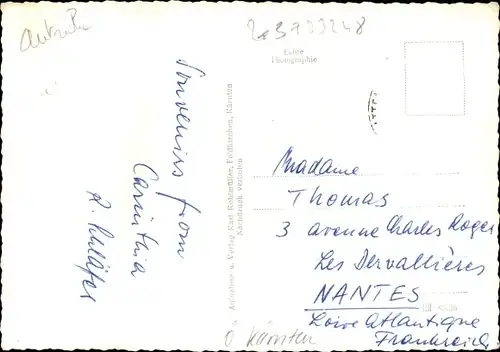 2.3733248
Echte
Photographie
Souvenirs from
Carinthia
Aufnahme u. Verlag Karl Kohlmüller, Feldkirchen, Kärnten
Nachdruck verboten
Madame
Thomas
3 avenue Charles Roger
Les Dervallières
NANTES
Loire Atlantique
Frankreich
Ö Kärnten